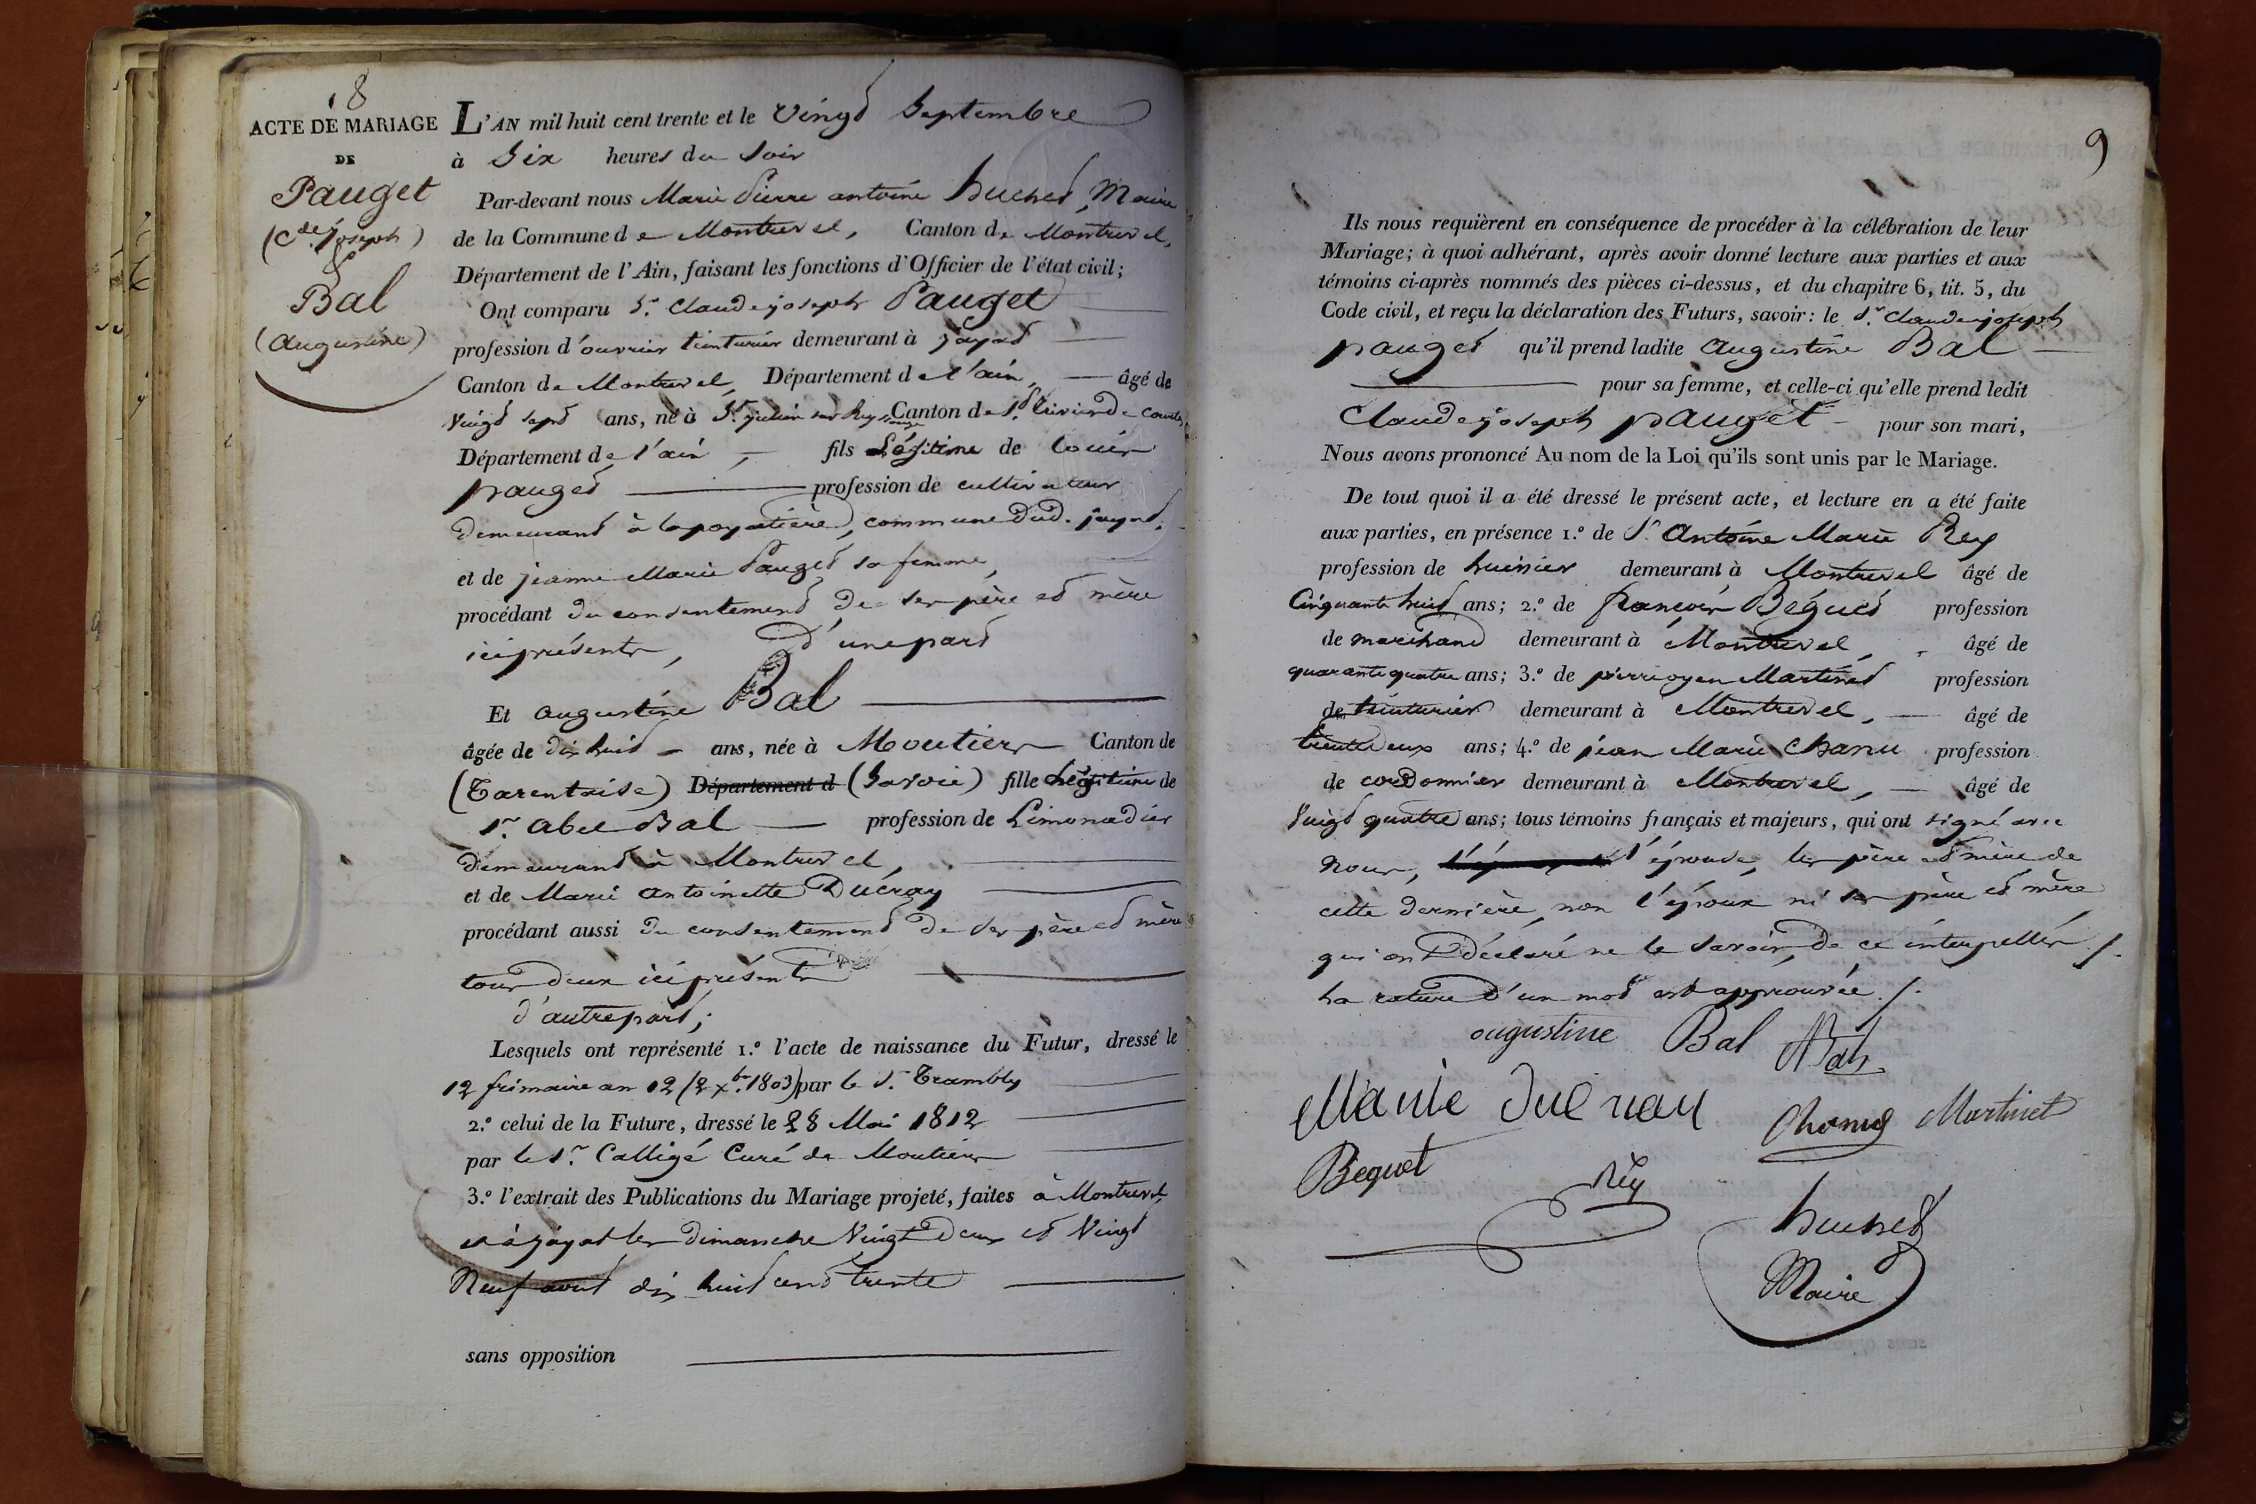 8
ACTE DE MARIAGE
DE
Pauget
(Cde. Joseph)
&
Bal
(augustine)
L'AN mil huit cent trente et le vingt Septembre
à Six heures du Soir
Par-devant nous Marie Pierre antoine huchet, Maire
de la Commune de Montrevel, Canton de Montrevel,
Département de l'Ain, faisant les fonctions d'Officier de l'état civil;
Ont comparu Sr. Claude joseph Pauget
profession d'ouvrier teinturier demeurant à jayat
Canton de Montrevel, Département de l'ain, âgé de
vingt sept ans, né à St. julien sur Reyssouze Canton de St. trivier de Courtes,
Département de l'ain, fils Légitime de Louis
pauget profession de cultivateur
demeurant à la poyatière, commune dud. jayat,
et de jeanne Marie Pauget sa femme,
procédant du consentement de ses père et mère
ici présents, d'une part
Et augustine Bal
âgée de dix huit ans, née à Moutiers Canton de
(Tarentaise) Département d (Savoie) fille Légitime de
Sr. abel Bal profession de Limonadier
demeurant à Montrevel,
et de Marie antoinette Ducray
procédant aussi du consentement de ses père et mère
tous deux ici présents
d'autre part;
Lesquels ont représenté 1.º l'acte de naissance du Futur, dressé le
12 frimaire an 12 (2 xbre. 1803) par le Sr. Trambly
2.º celui de la Future, dressé le 28 Mai 1812
par le Sr. Calligé Curé de Moutiers
3.º l'extrait des Publications du Mariage projeté, faites à Montrevel,
et à jayat les dimanche vingt deux et vingt
Neuf aout dix huit cent trente
sans opposition
9
Ils nous requièrent en conséquence de procéder à la célébration de leur
Mariage; à quoi adhérant, après avoir donné lecture aux parties et aux
témoins ci-après nommés des pièces ci-dessus, et du chapitre 6, tit. 5, du
Code civil, et reçu la déclaration des Futurs, savoir: le Sr. Claude joseph
pauget qu'il prend ladite augustine Bal
pour sa femme, et celle-ci qu'elle prend ledit
Claude joseph pauget pour son mari,
Nous avons prononcé Au nom de la Loi qu'ils sont unis par le Mariage.
De tout quoi il a été dressé le présent acte, et lecture en a été faite
aux parties, en présence 1.º de Sr. Antoine Marie Rey
profession de huissier demeurant à Montrevel âgé de
Cinquante huit ans; 2.º de françois Béguet profession
de marchand demeurant à Montrevel, âgé de
quarante quatre ans; 3.º de pierre oyen Martinet profession
de teinturier demeurant à Montrevel, âgé de
trente deux ans; 4.º de jean Marie Chanu profession
de cordonnier demeurant à Montrevel, âgé de
Vingt quatre ans; tous témoins français et majeurs, qui ont signé avec
nous, l'épouse, les père et mère de
cette dernière, non l'époux ni ses père et mère
qui ont déclaré ne le savoir, de ce interpellés ./.
La rature d'un mot est approuvée ./.
augustine Bal ABal
Marie Ducray
Chanu Martinet
Beguet Rey
huchet
Maire